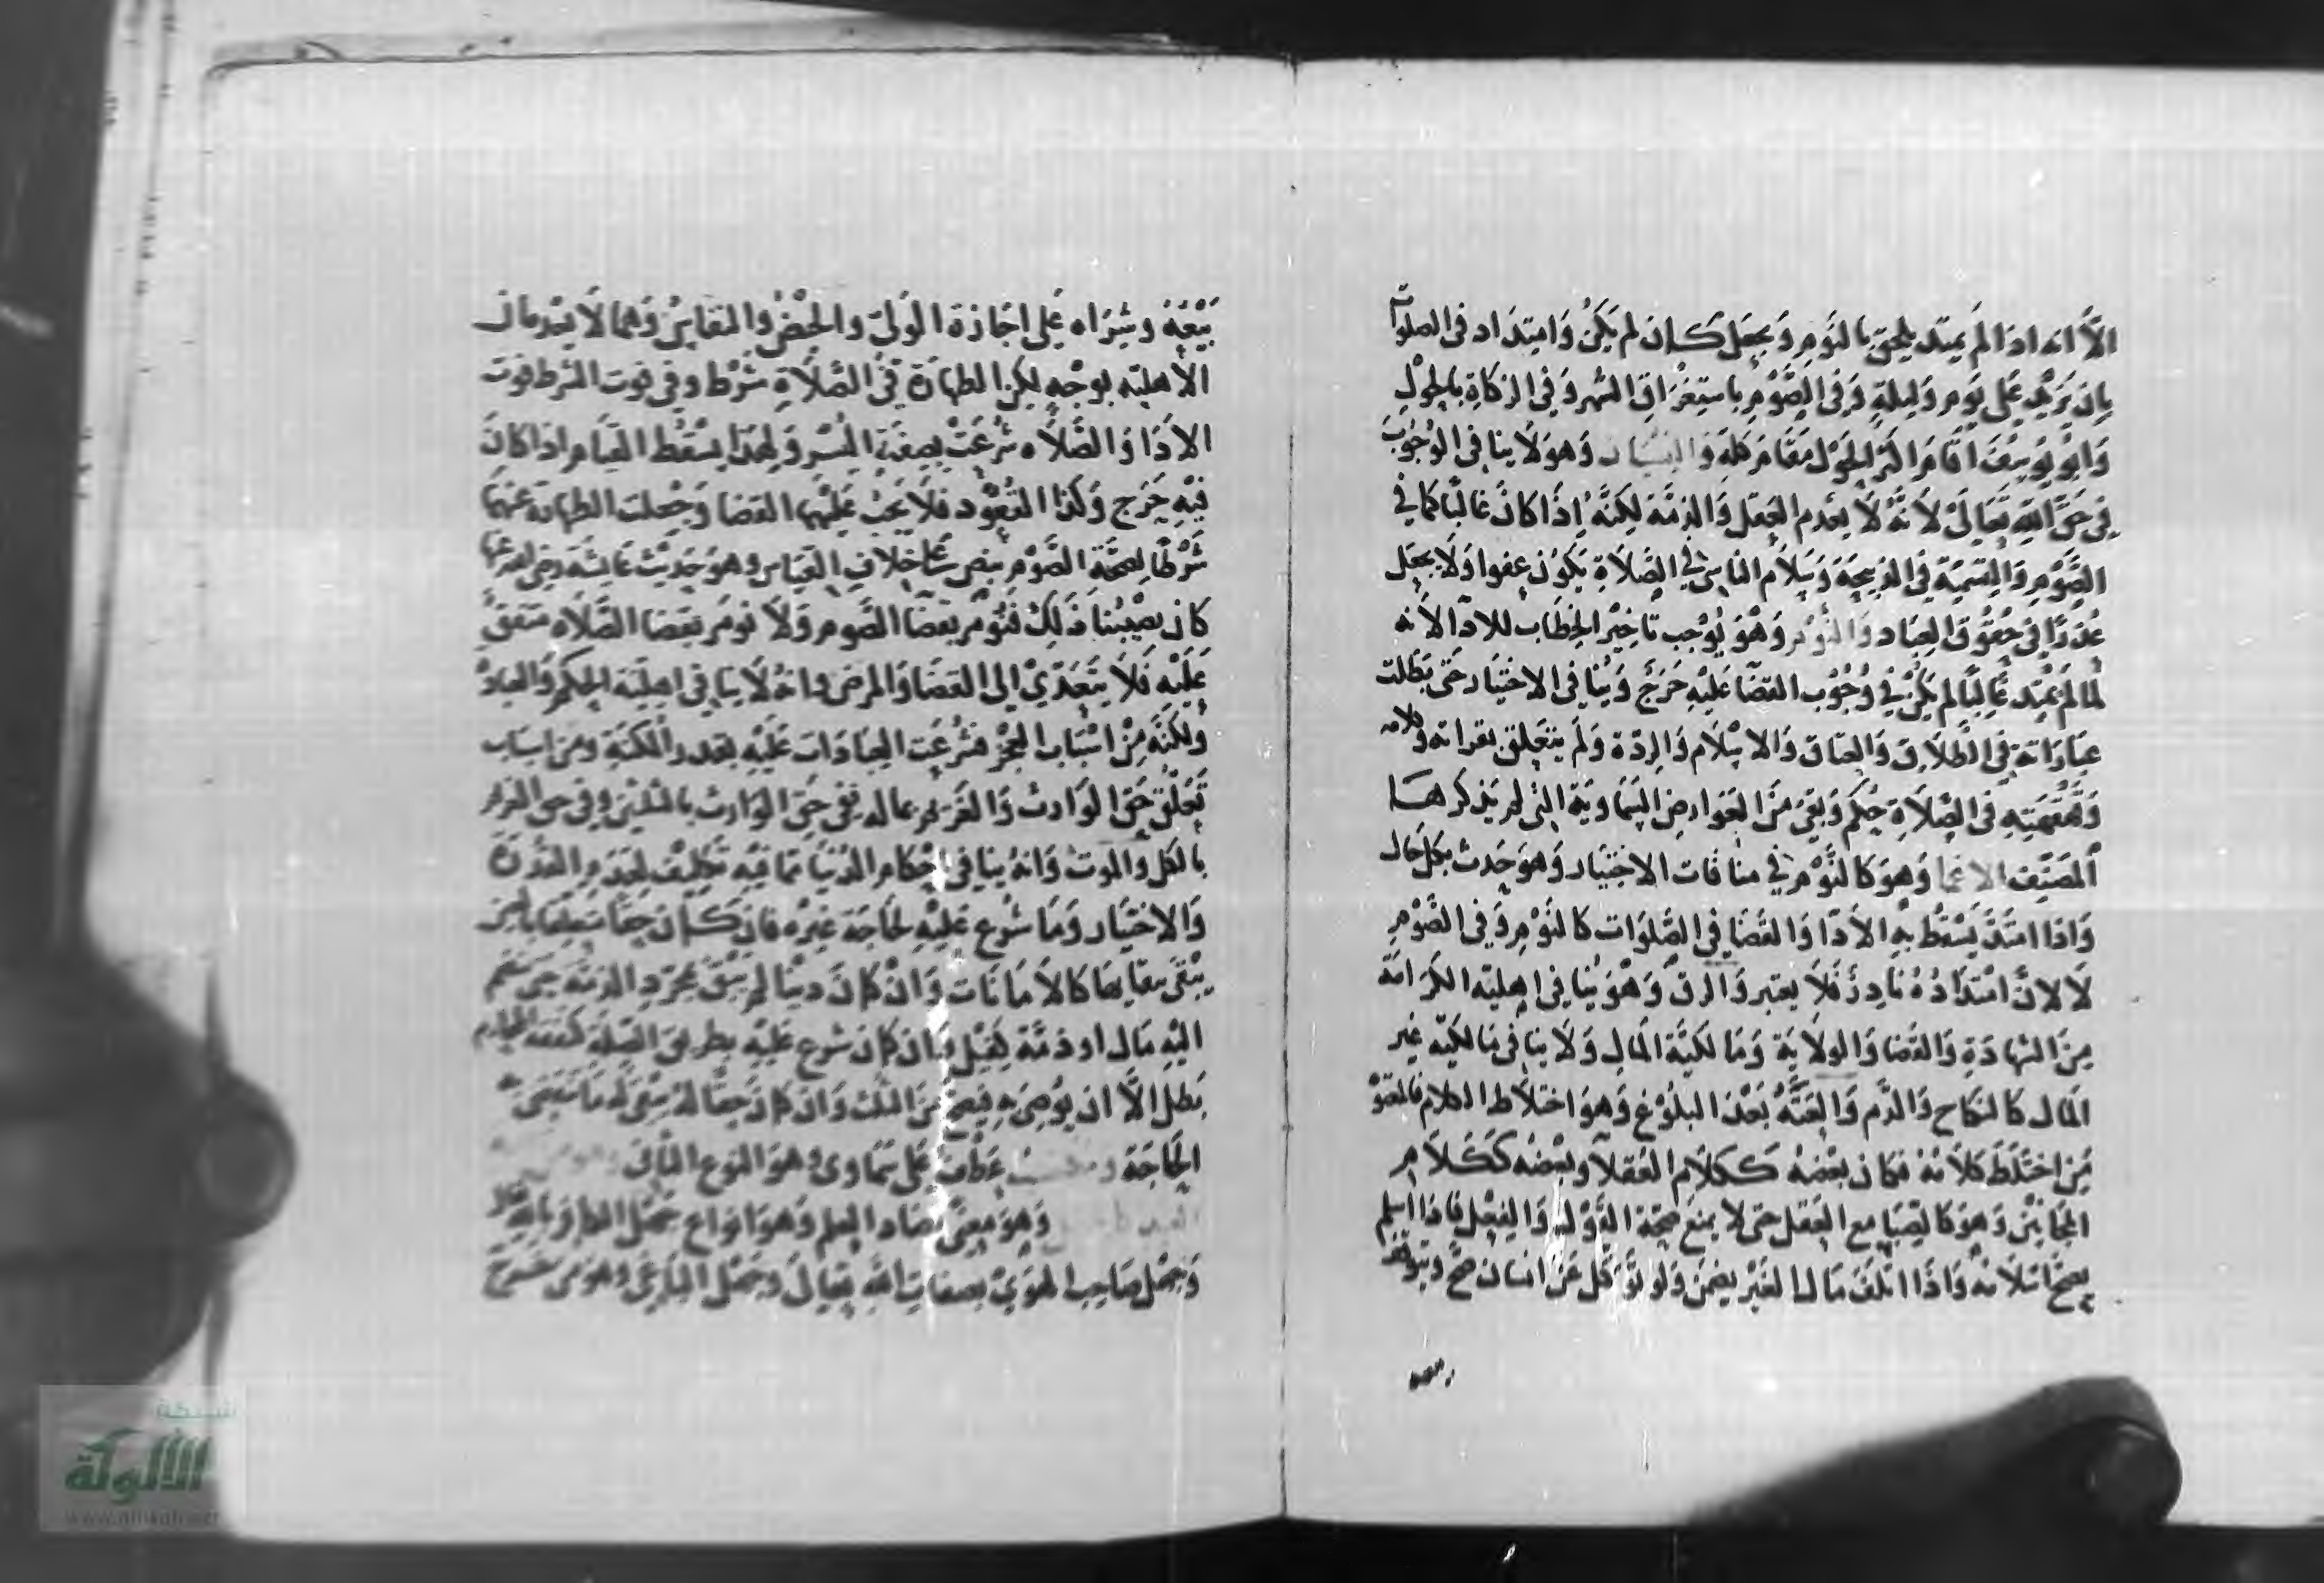 الا انه اذا لم يمتد يلحق بالنوم ويجعل كان لم يكن وامتداد في الصلوات
بان يزيد على يوم وليلة وفي الصوم باستغراق الشهر وفي الزكاة بالحول
وابو يوسف اقام اكثر الحول مقام كله والنسيان وهو لا ينافي الوجوب
في حق الله تعالى لانه لا يعدم العقل والذمة لكنه اذا كان غالبا كما في
الصوم والتسمية في الذبيحة وسلام الناس في الصلاة يكون عفوا ولا يجعل
عذرا في حقوق العباد والنوم وهو يوجب تاخير الخطاب للادآ لانه
لما لم يمتد غالبا لم يكن في وجوب القضا عليه حرج وينافي الاختيار حتى بطلت
عباراته في الطلاق والعتاق والاسلام والردة ولم يتعلق بقراته وكلامه
وقهقهته في الصلاة حكم وبقي من العوارض السماوية التي لم يذكرها
المصنف الاغما وهو كالنوم في منافات الاختيار وهو حدث بكل حال
واذا امتد يسقط به الادا والقضا في الصلوات كالنوم وفي الصوم
لا لان امتداده نادر فلا يعتبر والرق وهو ينافي اهلية الكرامة
من الشهادة والقضا والولاية ومالكية المال ولا ينافي مالكية غير
المال كالنكاح والدم والعته بعد البلوغ وهو اختلاط الكلام فالمعتوه
من اختلط كلامه فكان بعضه ككلام العقلا وبعضه ككلام
المجانين وهو كالصبا مع العقل حتى لا يمنع صحة القول والفعل فاذا اسلم
يصح اسلامه واذا اتلف مالا لغير يضمن ولو توكل عن انسان صح ويتوقف
بيعه
بيعه وشراه على اجازة الولي والحيض والنفاس وهما لا يعدمان
الاهلية بوجه لكن الطهارة في الصلاة شرط وفي فوت الشرط فوت
الادا والصلاه شرعت بصفة اليسر ولهذا يسقط القيام اذا كان
فيه حرج وكذا القعود فلا يجب عليهما القضا وجعلت الطهارة عنهما
شرطا لصحة الصوم بنص على خلاف القياس وهو حديث عايشة رضي الله عنها
كان يصيبنا ذلك فنومر بقضا الصوم ولا نومر بقضا الصلاه متفق
عليه فلا يتعدي الى القضا والمرض وانه لا ينافي اهلية الحكم والعبارة
ولكنه من اسباب العجز فشرعت العبادات عليه بقدر المكنة ومن اسباب
تعلق حق الوارث والغريم بماله ففي حق الوارث بالثلثين وفي حق الغريم
بالكل والموت وانه ينافي احكام الدنيا مما فيه تكليف لعدم القدرة
والاختيار وما شرع عليه لحاجة غيره فان كان حقا متعلقا بالعين
يبقى ببقايها كالامانات وان كان دينا لم يبق بمجرد الذمة حتى يضم
اليه مال او ذمة كفيل وان كان شرع عليه بطريق الصلة كنفقة المحارم
بطل الا ان يوصي به فيصح من الثلث وان كان حقا له يبقى له ما تقضى به
الحاجة ومكتسب عطف على سماوي وهو النوع الثاني
وهو معنى يضاد العلم وهو انواع جهل الكافر بالله تعالى
وجهل صاحب الهوى بصفات الله تعالى وجهل الباغي وهو من خرج
شبكة
الألوكة
www.alukah.net